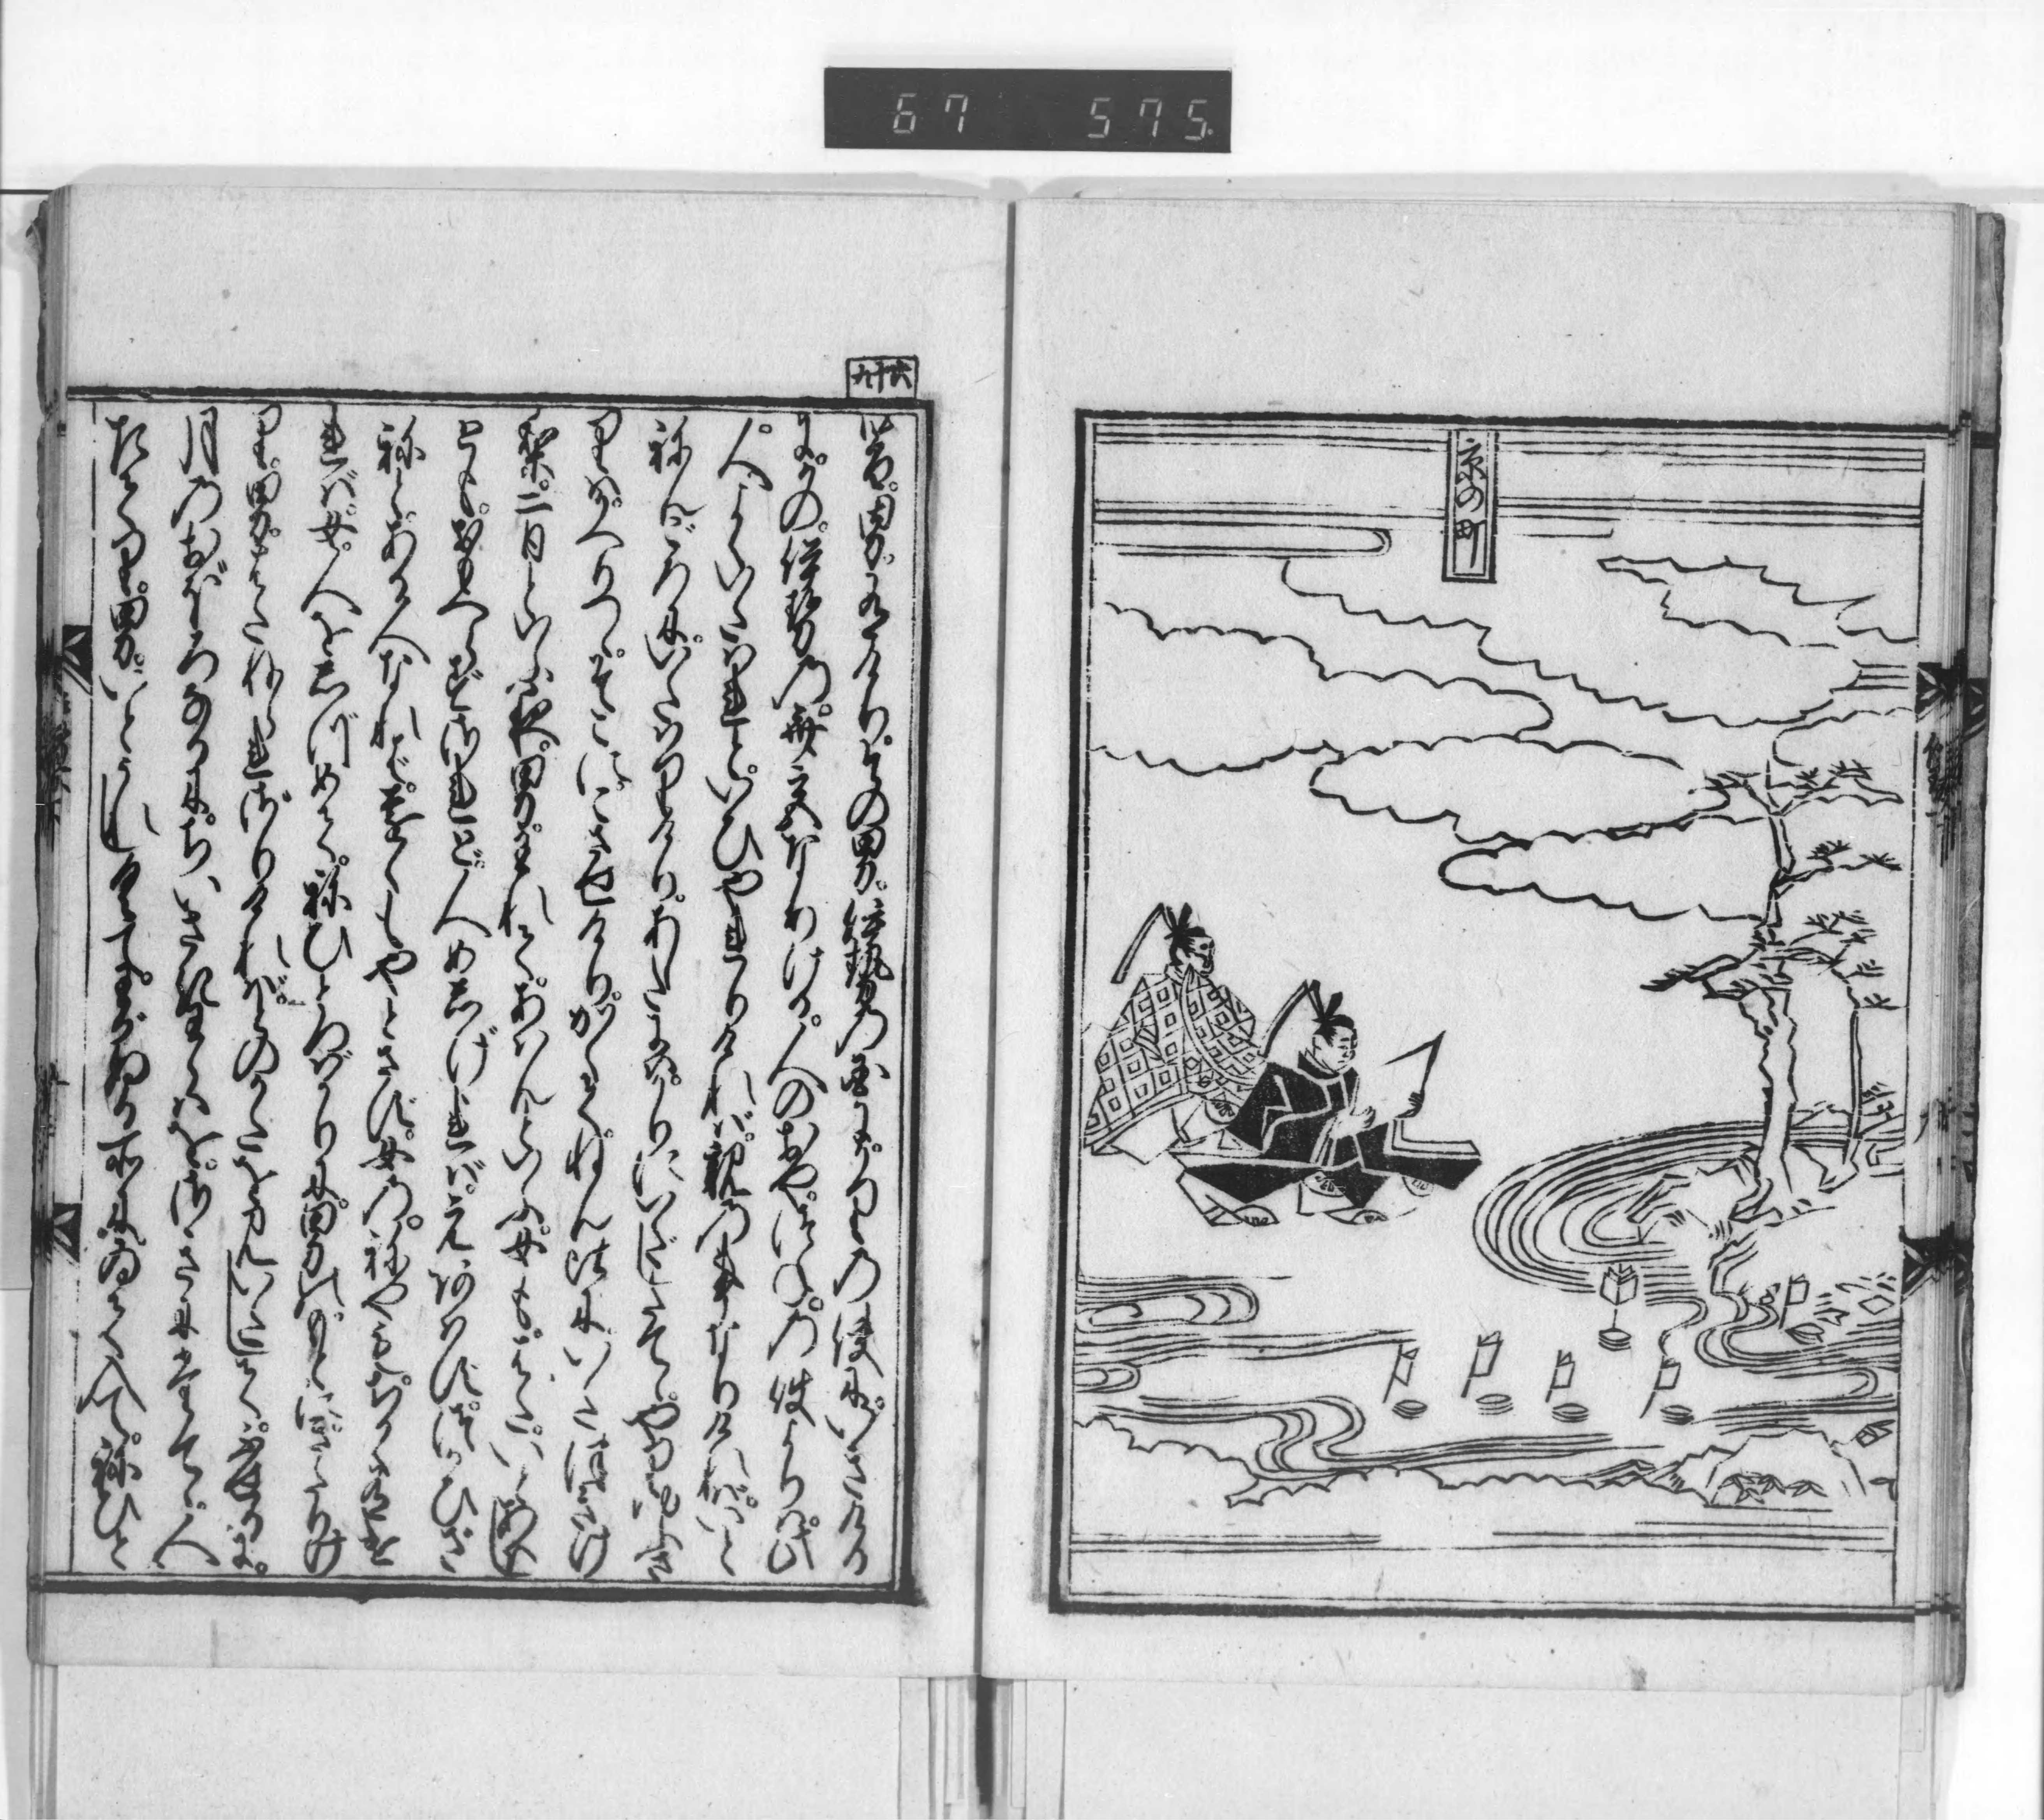 67 575.
京の町
六十九
昔。男。有けり。その男。伊勢の国に。かりの使に。いきける
に。かの。伊勢の。斎宮なりける。人のおや。つねの使よりは。此
人。よくいたはれと。いひやれりければ。親のことなりければ。いと
ねんごろに。いたはりけり。あしたには。かりにいだしたてて。やり。ゆふさ
りは。かへりつゝ。そこにこさせけり。かくて。ねんごろにいたつきけ
り。二日といふ夜。男。われて。あはんといふ。女も。はた。いとあは
じとも。おもへらず。されど。人めしげければ。えあはず。つかひざ
ねと。ある人なれば。とをくもやどさず。女の。ねやも。ちかく有け
れば。女。人をしづめて。ねひとつばかりに。男のもとに。きたりけ
り。男。はた。ねられざりければ。とのかたを見いだして。ふせるに。
月のおぼろなるに。ちいさきわらはを。さきにたてて。人
たてり。男。いとうれしくて。わがぬる所に。ゐていりて。ねひと